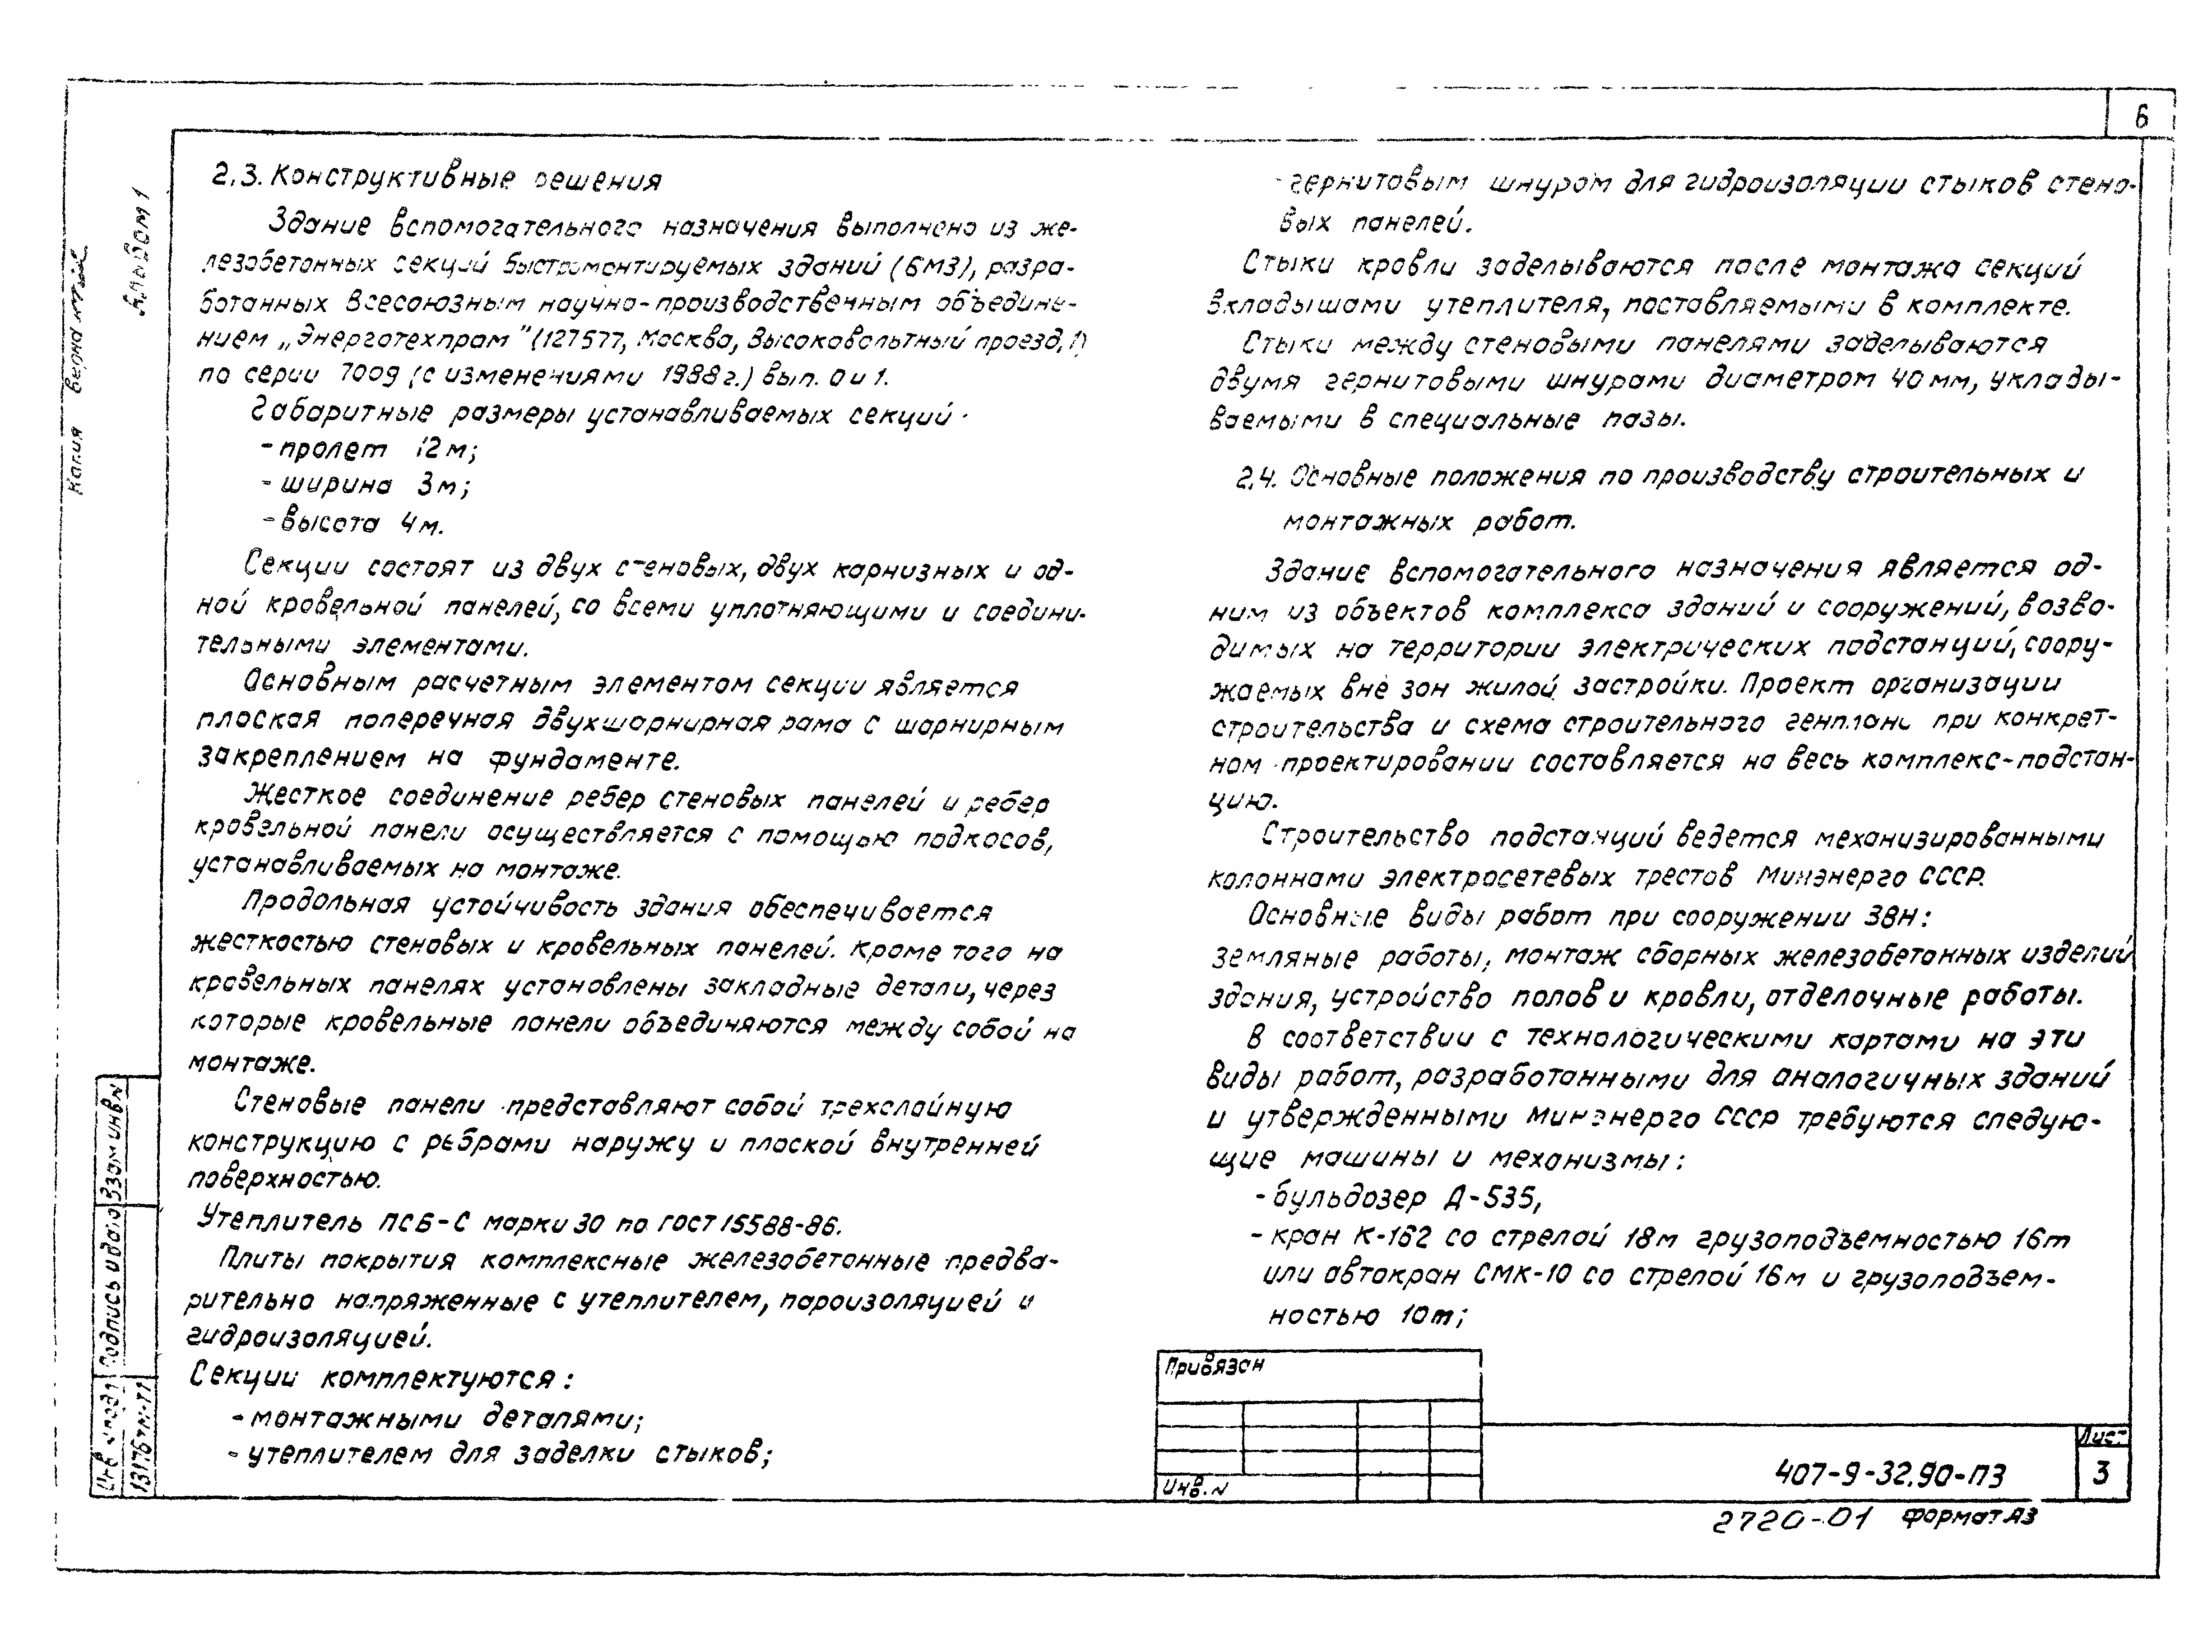 6
2.3. Конструктивные решения
Здание вспомогательного назначения выполнено из же-
лезобетонных секций быстромонтируемых зданий (БМЗ), разра-
ботанных Всесоюзным научно-производственным объедине-
нием „Энерготехпром" (127577, Москва, Высоковольтный проезд, 1)
по серии 7009 (с изменениями 1988г.) вып. 0 и 1.
Габаритные размеры устанавливаемых секций
- пролет 12м;
- ширина 3м;
- высота 4м.
Секции состоят из двух стеновых, двух карнизных и од-
ной кровельной панелей, со всеми уплотняющими и соедини-
тельными элементами.
Основным расчетным элементом секции является
плоская поперечная двухшарнирная рама с шарнирным
закреплением на фундаменте.
Жесткое соединение ребер стеновых панелей и ребер
кровельной панели осуществляется с помощью подкосов,
устанавливаемых на монтаже.
Продольная устойчивость здания обеспечивается
жесткостью стеновых и кровельных панелей. Кроме того на
кровельных панелях установлены закладные детали, через
которые кровельные панели объединяются между собой на
монтаже.
Стеновые панели представляют собой трехслойную
конструкцию с ребрами наружу и плоской внутренней
поверхностью.
Утеплитель ПСБ-С марки 30 по ГОСТ 15588-86.
Плиты покрытия комплексные железобетонные предва-
рительно напряженные с утеплителем, пароизоляцией и
гидроизоляцией.
Секции комплектуются:
- монтажными деталями;
- утеплителем для заделки стыков;
- гернитовым шнуром для гидроизоляции стыков стено-
вых панелей.
Стыки кровли заделываются после монтажа секций
вкладышами утеплителя, поставляемыми в комплекте.
Стыки между стеновыми панелями заделываются
двумя гернитовыми шнурами диаметром 40 мм, уклады-
ваемыми в специальные пазы.
2.4. Основные положения по производству строительных и
монтажных работ.
Здание вспомогательного назначения является од-
ним из объектов комплекса зданий и сооружений, возво-
димых на территории электрических подстанций, соору-
жаемых вне зон жилой застройки. Проект организации
строительства и схема строительного генплана при конкрет-
ном проектировании составляется на весь комплекс-подстан-
цию.
Строительство подстанций ведется механизированными
колоннами электросетевых трестов Минэнерго СССР.
Основные виды работ при сооружении ЗВН:
земляные работы, монтаж сборных железобетонных изделий
здания, устройство полов и кровли, отделочные работы.
В соответствии с технологическими картами на эти
виды работ, разработанными для аналогичных зданий
и утвержденными Минэнерго СССР требуются следую-
щие машины и механизмы:
- бульдозер Д-535,
- кран К-162 со стрелой 18м грузоподъемностью 16т
или автокран СМК-10 со стрелой 16м и грузоподъем-
ностью 10т;
Привязан
Инв. N
407-9-32.90-ПЗ
Лист
3
2720-01 Формат А3
Копия верна
Альбом 1
Взам инв N
Подпись и дата
Инв N подл
13176тм-т1